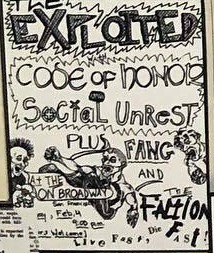 THE
EXPLOITED
WITH
CODE OF HONOR
SOCIAL UNREST
PLUS FANG
AT THE
ON BROADWAY
AND
San Francisco
THE
FACTION
Feb. 4
9:00 pm
Live Fast, Die Fast!